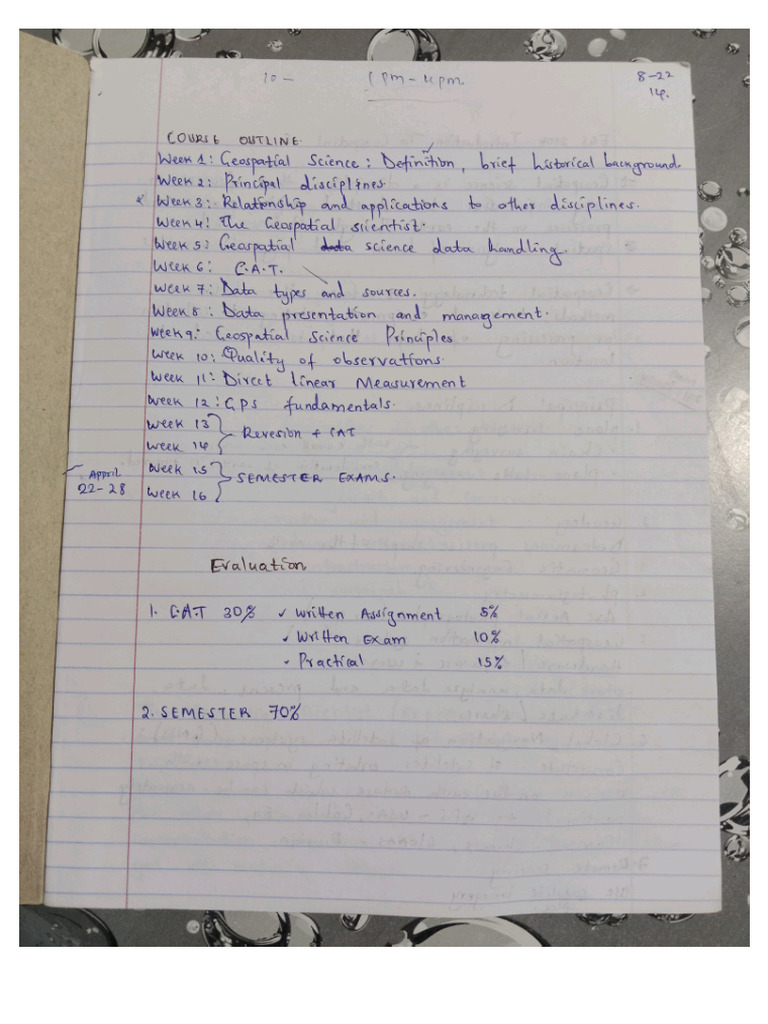 10 -
1 pm - 4 pm
8-22
14.
COURSE OUTLINE.
Week 1: Geospatial Science: Definition, brief historical background.
Week 2: Principal disciplines.
Week 3: Relationship and applications to other disciplines.
Week 4: The Geospatial scientist.
Week 5: Geospatial data science data handling.
Week 6: C.A.T.
Week 7: Data types and sources.
Week 8: Data presentation and management.
Week 9: Geospatial Science Principles
Week 10: Quality of observations.
Week 11: Direct linear Measurement
Week 12: GPS fundamentals.
Week 13
Revesion + CAT
Week 14
Week 15
SEMESTER EXAMS.
Appril
22-28
Week 16
Evaluation
1. C.A.T 30% ✓ Written Assignment 5%
✓ Written Exam 10%
• Practical 15%
2. SEMESTER 70%